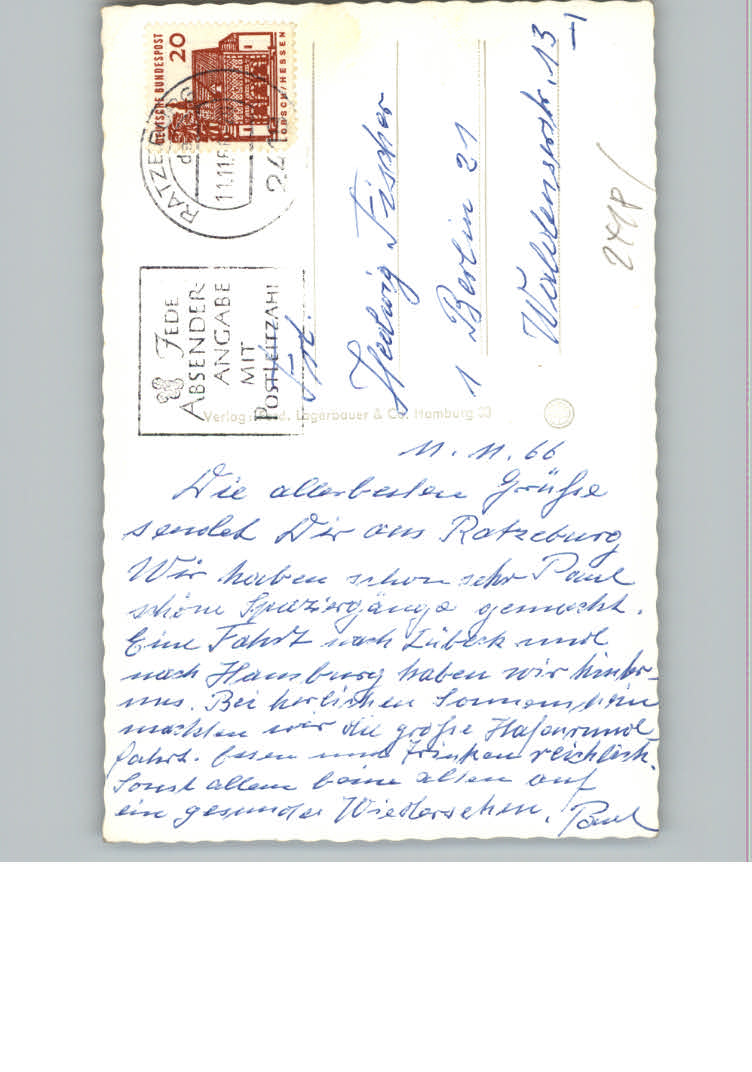 DEUTSCHE BUNDESPOST
20
LORSCH/HESSEN
RATZEBURG
11.11.66
2418
JEDE
ABSENDER-
ANGABE
MIT
POSTLEITZAHL
Frl.
Hedwig Fischer
1 Berlin 21
Waldenserstr. 13
2418
Verlag: Ferd. Lagerbauer & Co. Hamburg
11. 11. 66
Die allerbesten Grüße
sendet Dir aus Ratzeburg
Wir haben schon sehr Paul
schöne Spaziergänge gemacht.
Eine Fahrt nach Lübeck und
nach Hamburg haben wir hinter
uns. Bei herlichen Sonnenschein
machten wir die große Hafenrund
fahrt. Essen und Trinken reichlich.
Sonst allem beim alten auf
ein gesundes Wiedersehen. Paul